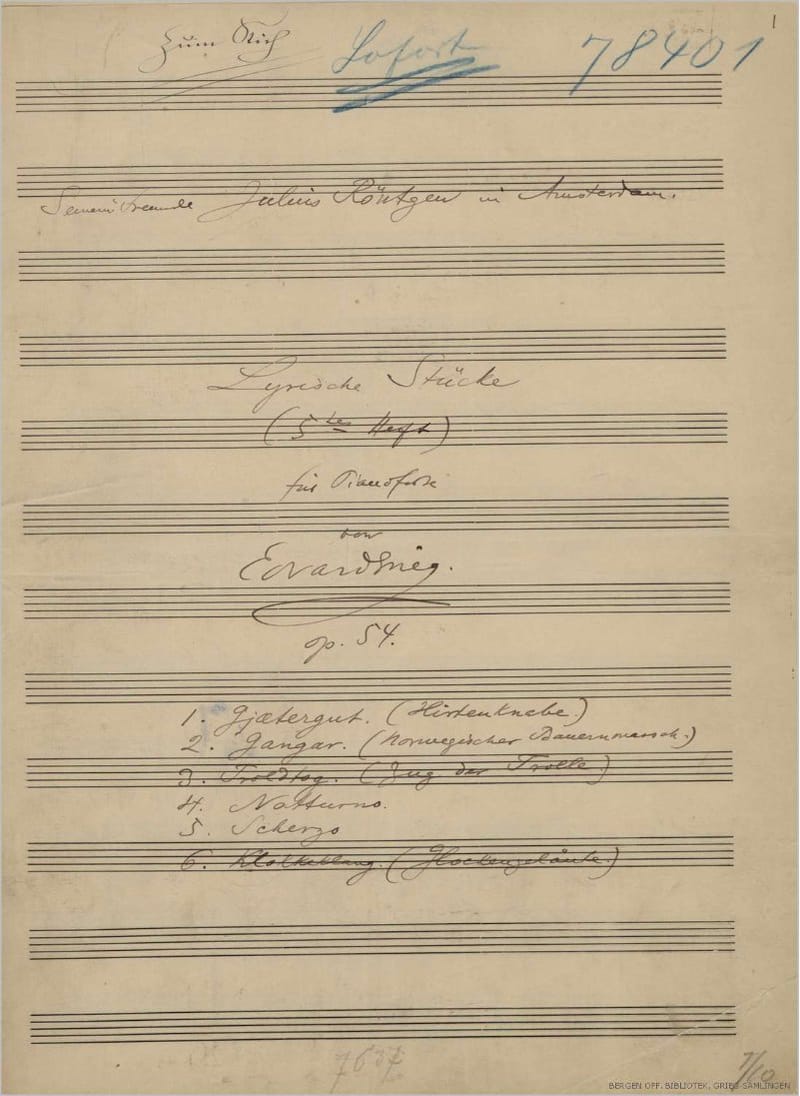 1
Zum Stich Sofort 78401
Seinem Freunde Julius Röntgen in Amsterdam.
Lyrische Stücke
(5tes Heft)
für Pianoforte
von
Edvard Grieg.
op. 54.
1. Gjætergut. (Hirtenknabe.)
2. Gangar. (Norwegischer Bauernmarsch.)
3. Troldtog. (Zug der Trolle.)
4. Notturno.
5. Scherzo
6. Klokkeklang. (Glockengeläute.)
7/10
BERGEN OFF. BIBLIOTEK, GRIEG SAMLINGEN